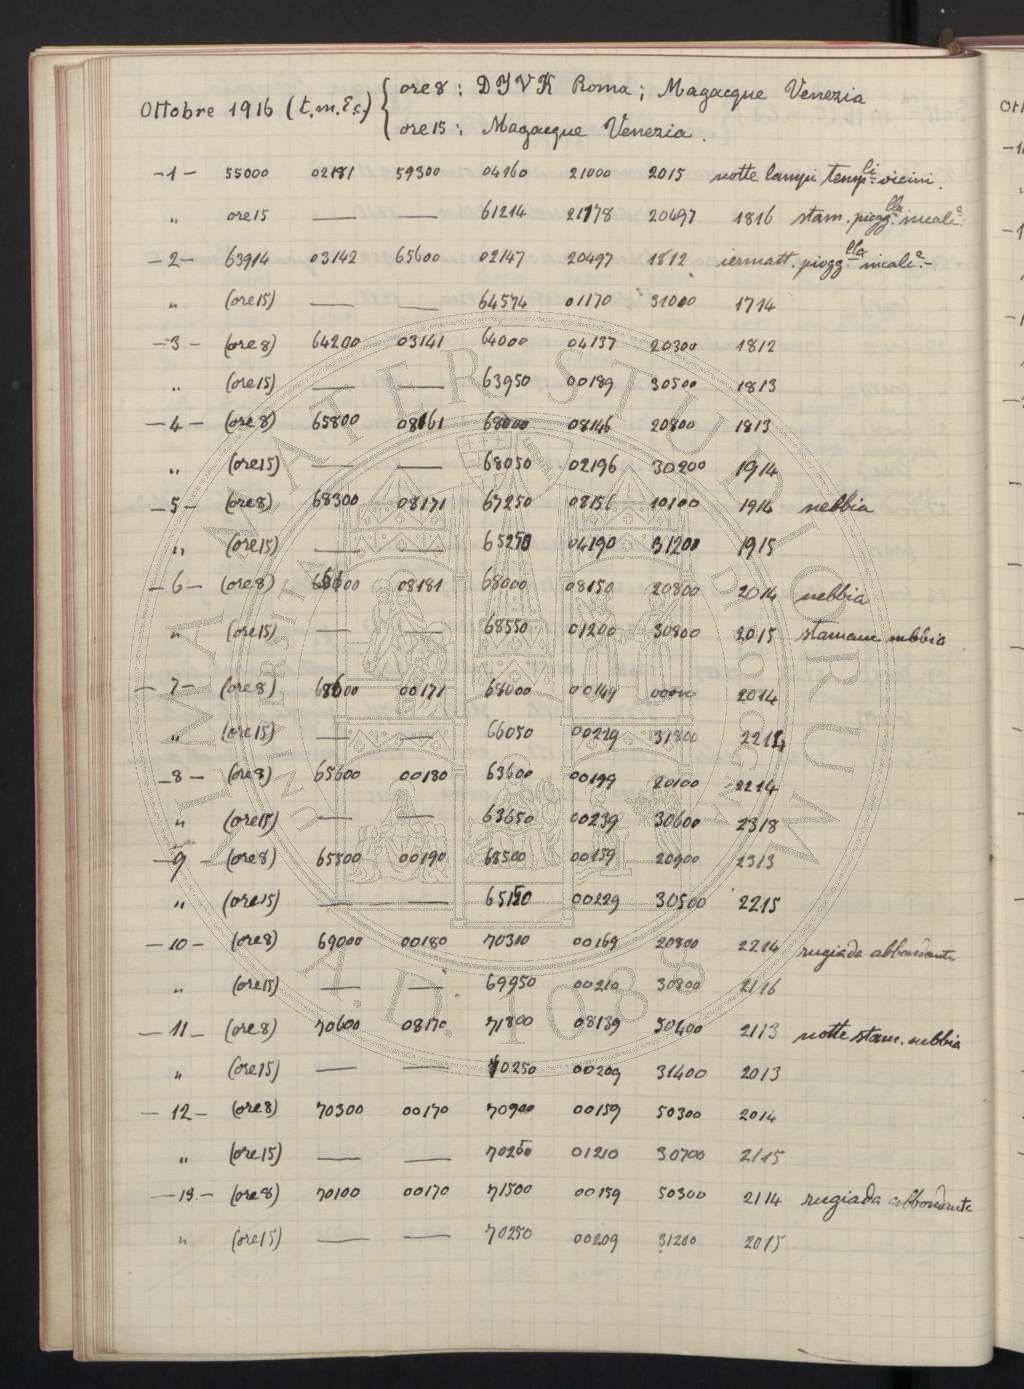 Ottobre 1916 (t.m.Es.) { ore 8 : DIVK Roma ; Magacque Venezia
ore 15 : Magacque Venezia .
-1- 55000 02181 59300 04160 21000 2015 notte lampi temp.li vicini.
" ore 15 — — 61214 21178 20497 1816 stam. piogg.lla incalc.e
-2- 63914 03142 65600 02147 20497 1812 iermatt. piogg.lla incalc.e -
" (ore 15) — — 64574 01170 31000 1714
-3- (ore 8) 64200 03141 64000 04137 20300 1812
" (ore 15) — — 63950 00189 30500 1813
-4- (ore 8) 65800 08161 68000 08146 20800 1813
" (ore 15) — — 68050 02196 30200 1914
-5- (ore 8) 68300 08171 67250 08156 10100 1914 nebbia
" (ore 15) — — 65250 04190 31200 1915
-6- (ore 8) 08181 68000 08150 20800 2014 nebbia
" (ore 15) — — 68550 01200 30800 2015 stamane nebbia
-7- (ore 8) 00171 68600 00149 2014
" (ore 15) — — 66050 00229 31800 2214
-8- (ore 8) 65600 00180 63600 00199 20100 2214
" (ore 15) — — 63650 00239 30600 2318
-9- (ore 8) 65500 00190 68500 00159 20900 2313
" (ore 15) — — 65150 00229 30500 2215
-10- (ore 8) 69000 00180 70300 00169 20800 2214 rugiada abbondante
" (ore 15) — — 69950 00210 30800 2116
-11- (ore 8) 70600 08170 71800 08139 50400 2113 notte stam. nebbia
" (ore 15) — — 70250 00209 31400 2013
-12- (ore 8) 70300 00170 70900 00159 50300 2014
" (ore 15) — — 70250 01210 30700 2115
-13- (ore 8) 70100 00170 71500 00159 50300 2114 rugiada abbondante
" (ore 15) — — 70250 00209 31200 2015
ALMA MATER STUDIORUM
UNIVERSITÀ DI BOLOGNA
A.D. 1088